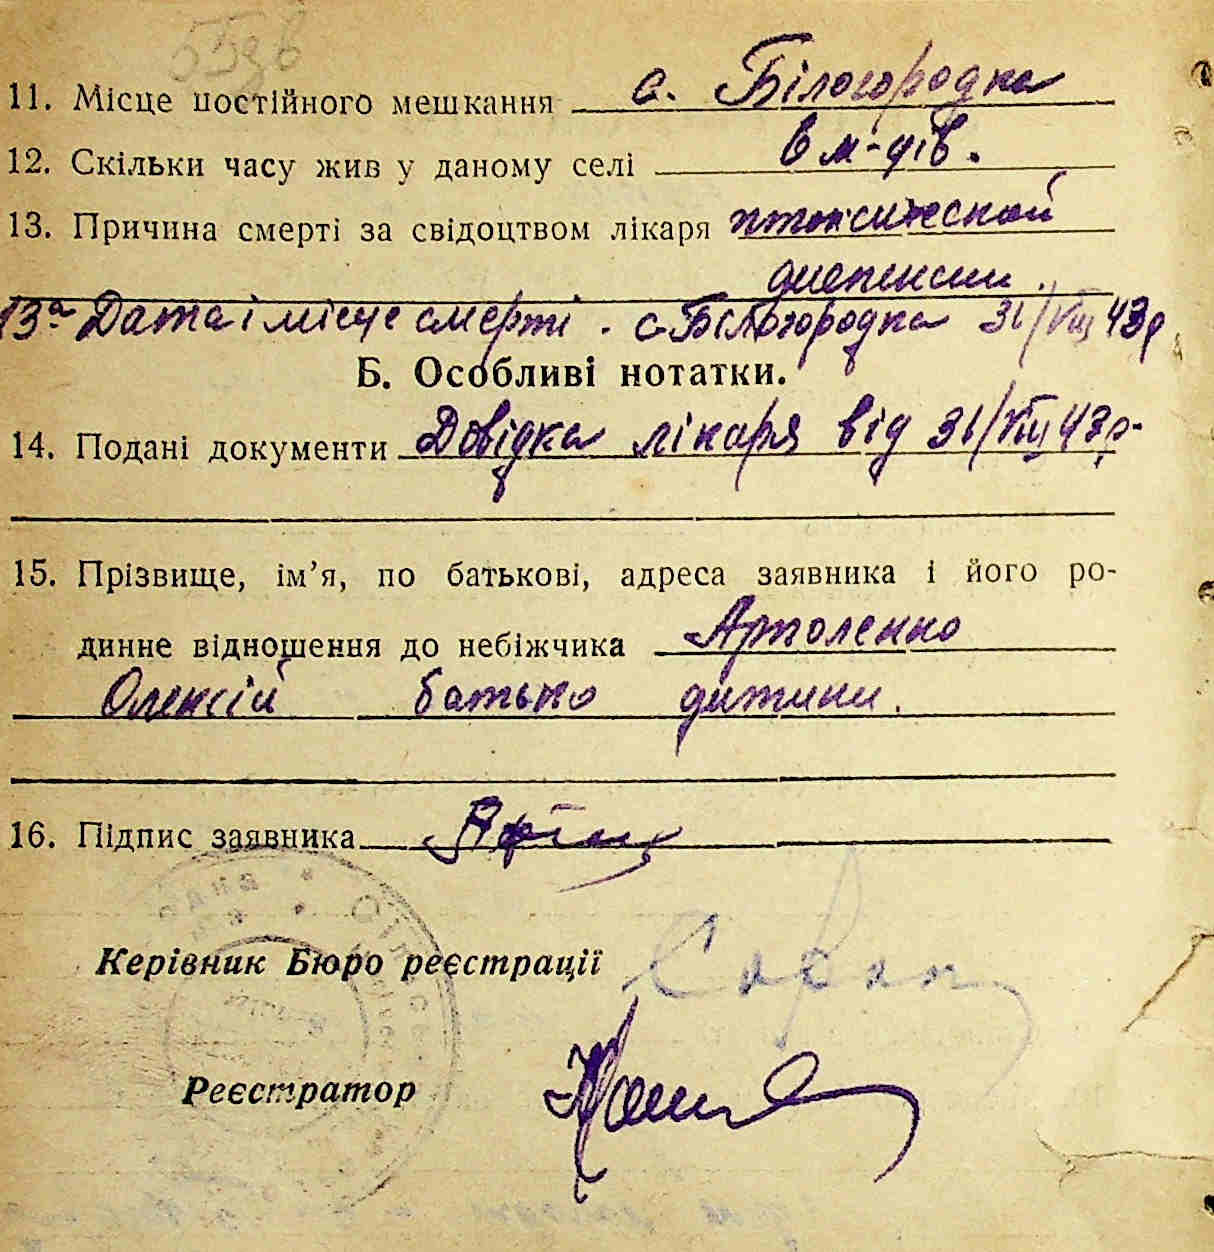 11. Місце постійного мешкання с. Білогородка
12. Скільки часу жив у даному селі 6 м-ців.
13. Причина смерті за свідоцтвом лікаря
диспепсии.
13а Дата і місце смерті. с. Білогородка 31/VIII 43 р.
Б. Особливі нотатки.
14. Подані документи Довідка лікаря від 31/VIII 43 р.
15. Прізвище, ім’я, по батькові, адреса заявника і його ро-
динне відношення до небіжчика Артоленко
Олексій батько дитини.
16. Підпис заявника
Керівник Бюро реєстрації
Реєстратор